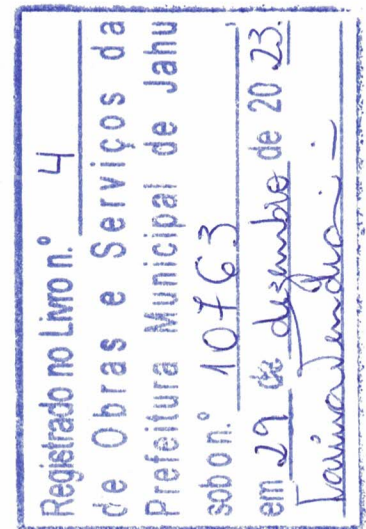 Registrado no Livro n.º 4
de Obras e Serviços da
Prefeitura Municipal de Jahu
sob o n.º 10763,
em 29 de dezembro de 2023.